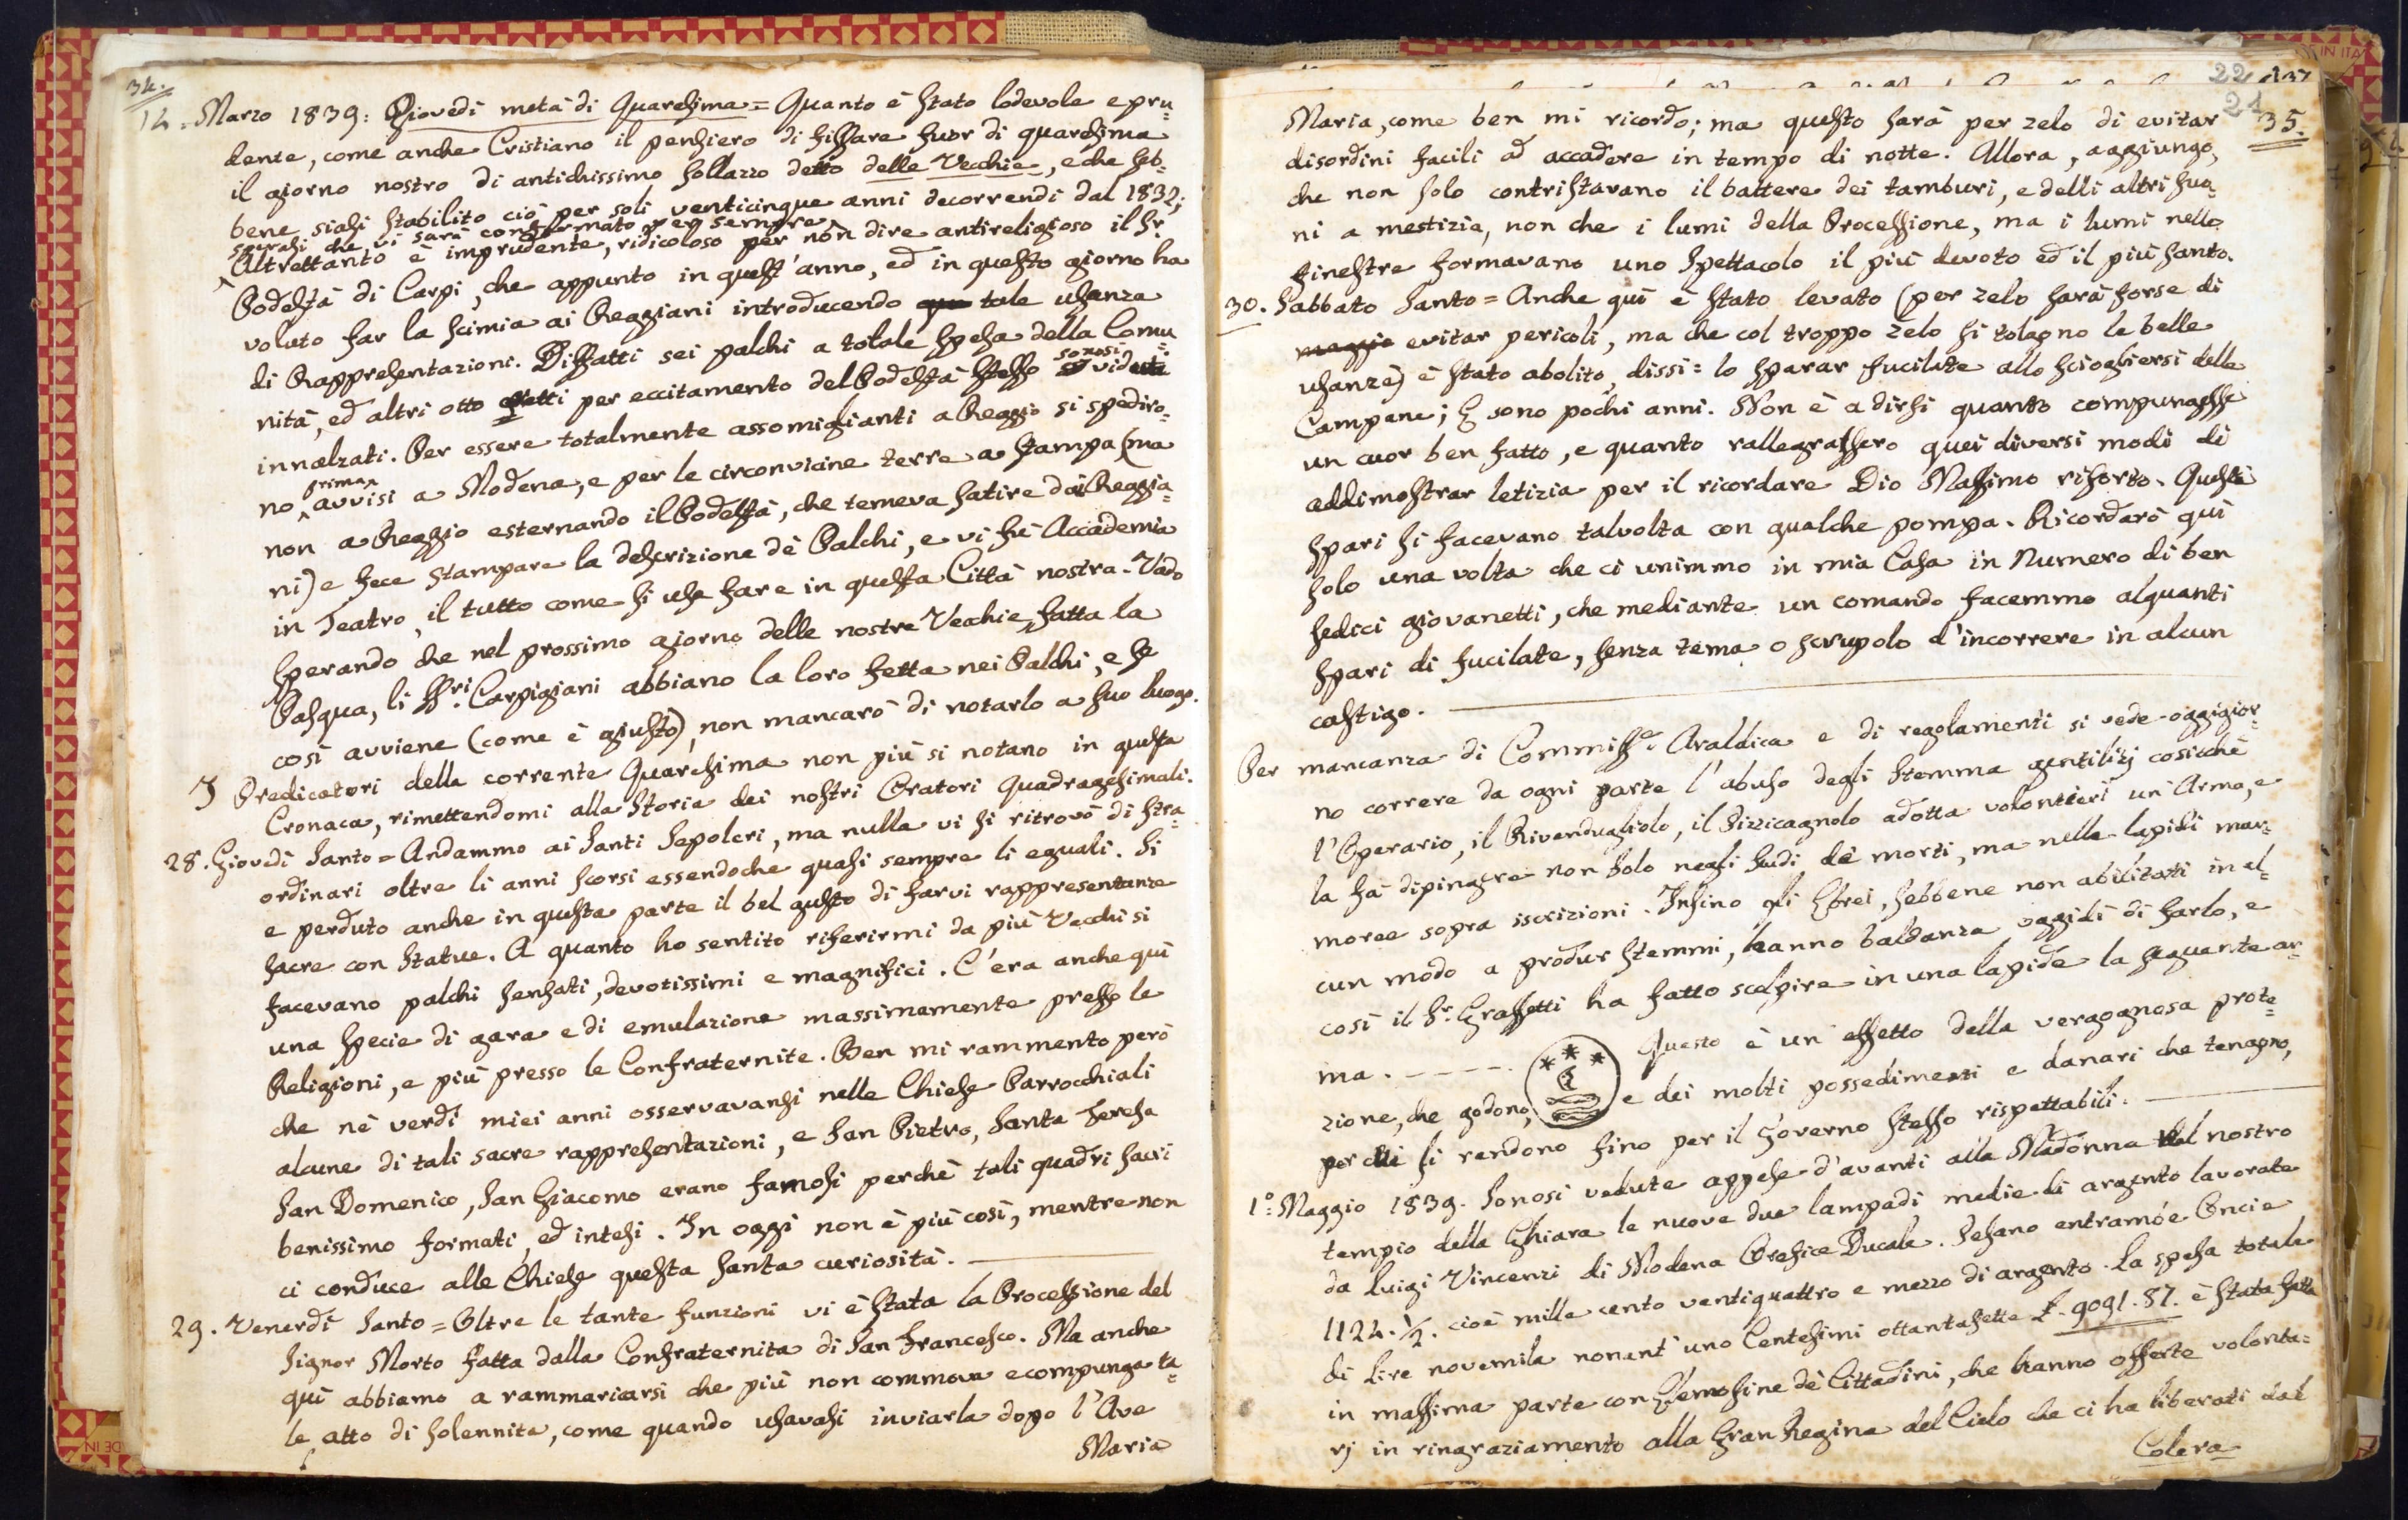 34.
14. Marzo 1839: Giovedì metà di Quaresima = Quanto è stato lodevole e pru=
dente, come anche Cristiano il pensiero di fissare fuor di quaresima
il giorno nostro di antichissimo sollazzo detto delle Vecchie, e che seb=
bene siasi stabilito ciò per soli venticinque anni decorrendi dal 1832;
sperasi che vi sarà confermato per sempre
Altrettanto è imprudente, ridicoloso per non dire antireligioso il Sr.
Podestà di Carpi, che appunto in quest'anno, ed in questo giorno ha
voluto far la scimia ai Reggiani introducendo que tale usanza
di Rappresentazioni. Diffatti sei palchi a totale spesa della Comu=
nità, ed altri otto eretti per eccitamento del Podestà stesso sonosi veduti
innalzati. Per essere totalmente assomiglianti a Reggio si spediro=
no prima avvisi a Modena, e per le circonvicine terre a stampa (ma
non a Reggio esternando il Podestà, che temeva satire dai Reggia=
ni) e fece stampare la descrizione dè Palchi, e vi fù Accademia
in Teatro, il tutto come si usa fare in questa Città nostra. Vado
sperando che nel prossimo giorno delle nostre Vecchie, fatta la
Pasqua, li SSri. Carpigiani abbiano la loro fetta nei Palchi, e se
così avviene (come è giusto) non mancarò di notarlo a suo luogo.
I Predicatori della corrente Quaresima non più si notano in questa
Cronaca, rimettendomi alla Storia dei nostri Oratori Quadragesimali.
28. Giovedì Santo = Andammo ai Santi Sepolcri, ma nulla vi si ritrovò di stra=
ordinari oltre li anni scorsi essendoche quasi sempre li eguali. Si
e perduto anche in questa parte il bel gusto di farvi rappresentanze
sacre con Statue. A quanto ho sentito riferirmi da più Vecchi si
facevano palchi sensati, devotissimi e magnifici. C'era anche quì
una specie di gara e di emulazione massimamente presso le
Religioni, e più presso le Confraternite. Ben mi rammento però
che nè verdi miei anni osservavansi nelle Chiese Parrocchiali
alcune di tali sacre rappresentazioni, e San Pietro, Santa Teresa
San Domenico, San Giacomo erano famosi perchè tali quadri sacri
benissimo formati, ed intesi. In oggi non è più così, mentre non
ci conduce alle Chiese questa santa curiosità.
29. Venerdì Santo = Oltre le tante funzioni vi è stata la Processione del
Signor Morto fatta dalla Confraternita di San Francesco. Ma anche
quì abbiamo a rammaricarsi che più non commova e compunga ta=
le atto di solennita, come quando usavasi inviarla dopo l'Ave
Maria
22
137
21
35.
Maria, come ben mi ricordo; ma questo sarà per zelo di evitar
disordini facili ad accadere in tempo di notte. Allora, aggiungo,
che non solo contristavano il battere dei tamburi, e delli altri suo=
ni a mestizia, non che i lumi della Processione, ma i lumi nelle
finestre formavano uno spettacolo il più devoto ed il più santo.
30. Sabbato Santo = Anche quì è stato levato (per zelo sarà forse di
maggio evitar pericoli, ma che col troppo zelo si tolagno le belle
usanze) è stato abolito, dissi: lo sparar fucilate allo sciogliersi delle
Campane; E sono pochi anni. Non è a dirsi quanto compungesse
un cuor ben fatto, e quanto rallegrassero quei diversi modi di
addimostrar letizia per il ricordare Dio Massimo risorto. Questi
spari si facevano talvolta con qualche pompa. Ricordarò quì
solo una volta che ci unimmo in mia Casa in Numero di ben
sedici giovanetti, che mediante un comando facemmo alquanti
spari di fucilate, senza tema o scrupolo d'incorrere in alcun
castigo.
Per mancanza di Commisse. Araldica e di regolamenti si vede oggigior=
no correre da ogni parte l'abuso degli stemma gentilizj cosicchè
l'Operario, il Rivendugliolo, il Pizzicagnolo adotta volontieri un'Arma, e
la fà dipingere non solo negli scudi dei morti, ma nelle lapidi mar=
moree sopra iscrizioni. Insino gli Ebrei, sebbene non abilitati in al=
cun modo a produr stemmi, hanno baldanza oggidì di farlo, e
così il Sr. Grassetti ha fatto scolpire in una lapide la seguente ar=
ma. - - - - - Questo è un effetto della vergognosa prote=
zione, che godono, e dei molti possedimenti e danari che tengono,
per cui si rendono fino per il Governo stesso rispettabili.
1°: Maggio 1839. Sonosi vedute appese d'avanti alla Madonna del nostro
tempio della Ghiara le nuove due lampadi medie di argento lavorate
da Luigi Vincenzi di Modena Orefice Ducale. Pesano entrambe Oncie
1124. ½. cioè mille cento ventiquattro e mezzo di argento. La spesa totale
di Lire novemila nonant'uno Centesimi ottantasette £. 9091.87. è stata fatta
in massima parte con Elemosine dè Cittadini, che hanno offerte volonta=
rj in ringraziamento alla Gran Regina del Cielo che ci ha liberati dal
Colera